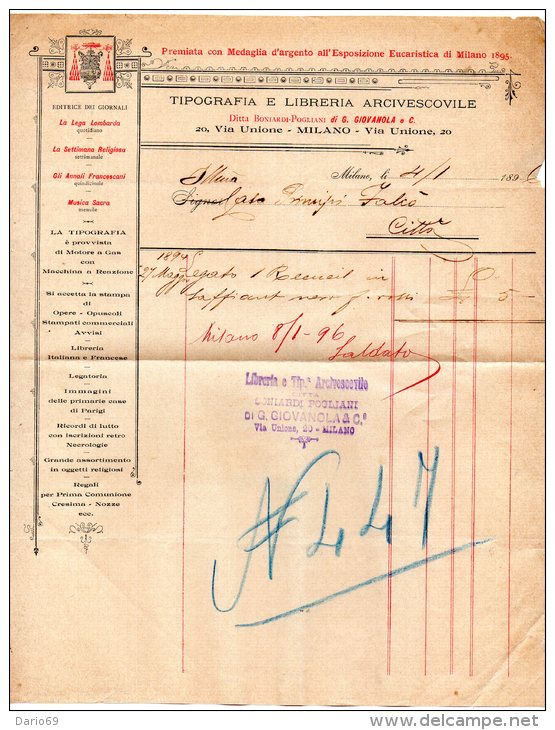 Premiata con Medaglia d'argento all'Esposizione Eucaristica di Milano 1895.
TIPOGRAFIA E LIBRERIA ARCIVESCOVILE
Ditta BONIARDI-POGLIANI di G. GIOVANOLA e C.
20, Via Unione - MILANO - Via Unione, 20
EDITRICE DEI GIORNALI
La Lega Lombarda
quotidiano
La Settimana Religiosa
settimanale
Gli Annali Francescani
quindicinale
Musica Sacra
mensile
LA TIPOGRAFIA
è provvista
di Motore a Gas
con
Macchina a Reazione
Si accetta la stampa
di
Opere - Opuscoli
Stampati commerciali
Avvisi
Libreria
Italiana e Francese
Legatoria
Immagini
delle primarie case
di Parigi
Ricordi di lutto
con iscrizioni retro
Necrologie
Grande assortimento
in oggetti religiosi
Regali
per Prima Comunione
Cresima - Nozze
ecc.
Milano, li 4/1 1896
Signor Casa Principi Falcò
Città
1894
27 Magg Legato 1 Recueil in
saffiant nero f. rossi £ 5 -
Milano 8/1-96
Saldato
Libreria e Tip.a Arcivescovile
DITTA
BONIARDI POGLIANI
DI G. GIOVANOLA & C.o
Via Unione, 20 - MILANO
N 447
Dario69
delcampe.net